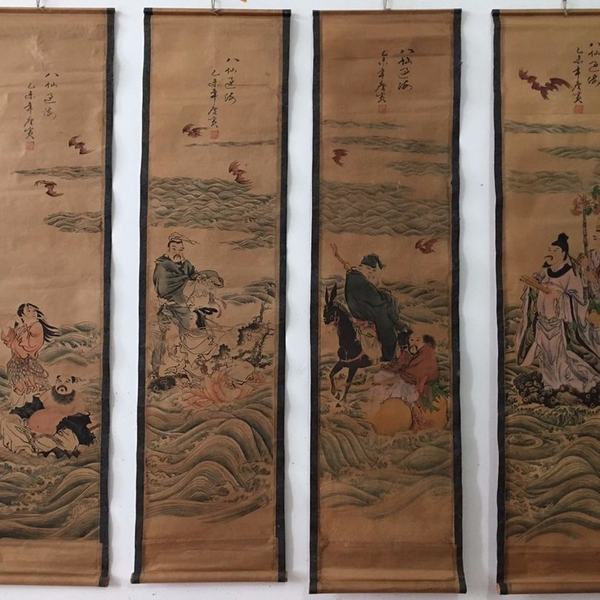 八仙過海
乙未年唐寅
八仙過海
乙未年唐寅
八仙過海
乙未年唐寅
八仙過海
乙未年唐寅